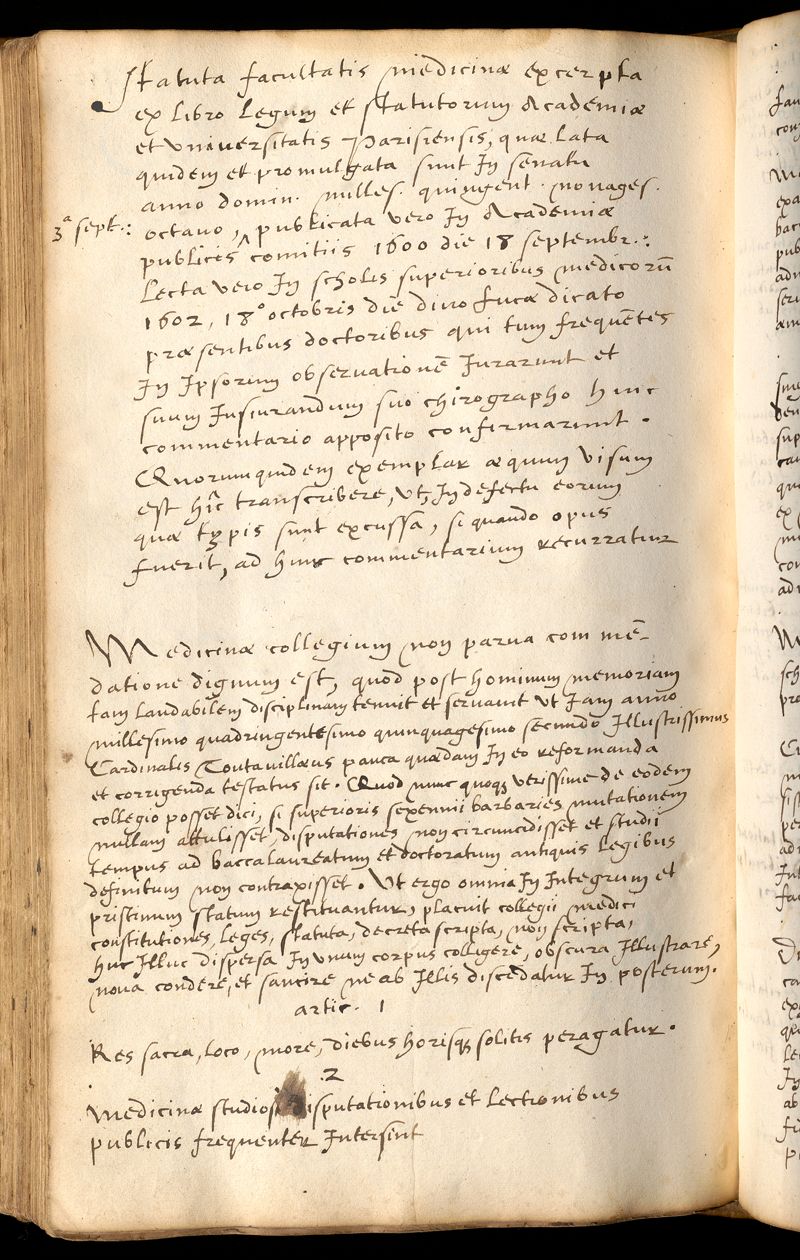 Statuta facultatis medicinæ excerpta
ex libro Legum et statutorum Academiæ
et Universitatis Parisiensis, quæ lata
quidem et promulgata sunt In senatu
anno domin. milles. quingent. nonages.
3ª sept.: octavo, ^ publicata vero In Academiæ
publicis comitiis 1600 die 18 septembr.:
Lecta vero In scholis superioribus medicorū
1602, 18° octobris die divo Lucæ dicato
præsentibus doctoribus qui tum frequētes
In Ipsorum observationē Iurarunt et
suum Iusiurandum suo chirographo huic
commentario apposito confirmarunt.
Quorumquidem exemplar æquum visum
est hîc transcribere, ut, In defectu eorum
quæ typis sunt excussa, si quando opus
fuerit, ad hunc commentarium recurratur
Medicinæ collegium non parva com mē-
datione dignum est, quod post hominum memoriam
tam laudabilem disciplinam tenuit et servavit ut Iam anno
millesimo quadringentesimo quinquagesimo secundo Illustrissimus
Cardinalis Toutavillæus pauca quædam In eo reformanda
et corrigenda testatus sit. Quod nunc quoq; verissime de eodem
collegio posset dici, si superioris sexennii barbaries mutationem
nullam attulisset, disputationes non circuncidisset et studii
tempus ad baccalaureatum et doctoratum antiquis Legibus
definitum non contraxisset. Ut ergo omnia In Integrum et
pristinum statum restituantur, placuit collegii medici
constitutiones, Leges, statuta, decreta scripta, non scripta,
huc Illuc dispersa In unum corpus colligere, obscura Illustrare,
nova condere, et sancire ne ab Illis discedatur In posterum.
artic. 1
Res sacra, loco, more, diebus horisq; solitis peragatur.
.2
Medicinæ studiosi disputationibus et Lectionibus
publicis frequenter Intersint